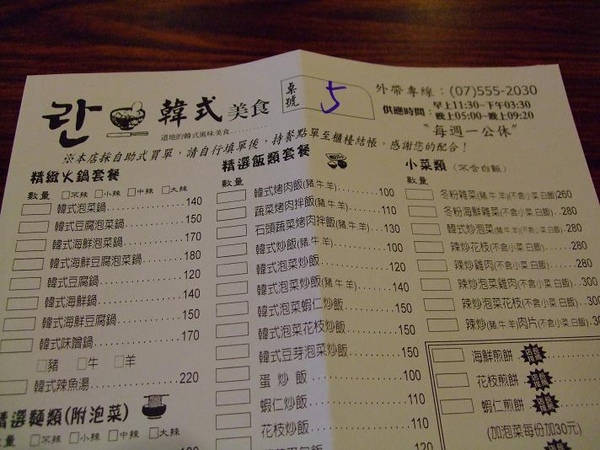 란 韓式美食
道地的韓式風味美食......
桌號 5
外帶專線：(07)555-2030
供應時間：早上11:30~下午03:30
晚上05:00~晚上09:20
"每週一公休"
※本店採自助式買單，請自行填單後，持餐點單至櫃檯結帳，感謝您的配合！
精緻火鍋套餐
數量 □不辣 □小辣 □中辣 □大辣
韓式泡菜鍋 140
韓式豆腐泡菜鍋 150
韓式海鮮泡菜鍋 170
韓式海鮮豆腐泡菜鍋 180
韓式豆腐鍋 120
韓式海鮮鍋 140
韓式海鮮豆腐鍋 150
韓式味噌鍋 170
□豬 □牛 □羊
韓式辣魚湯 220
精選麵類(附泡菜)
數量 □不辣 □小辣 □中辣 □大辣
精選飯類套餐
數量
韓式烤肉飯(豬牛羊) 100
蔬菜烤肉拌飯(豬牛羊) 110
石頭蔬菜烤肉拌飯(豬牛羊) 130
韓式炒飯(豬牛羊) 100
韓式泡菜炒飯 120
韓式泡菜炒飯(豬牛羊) 140
韓式泡菜蝦仁炒飯 140
韓式泡菜花枝炒飯 150
韓式豆芽泡菜炒飯 150
蛋炒飯 100
蝦仁炒飯 110
花枝炒飯
小菜類 (不含白飯)
數量
冬粉雜菜(豬牛羊)(不含小菜.白飯) 260
冬粉海鮮雜菜(不含小菜.白飯) 280
韓式炒泡菜(豬牛羊)(不含小菜.白飯) 280
辣炒花枝(不含小菜.白飯) 280
辣炒雞肉(不含小菜.白飯) 280
辣炒泡菜雞肉(不含小菜.白飯) 300
辣炒泡菜花枝(不含小菜.白飯) 300
辣炒(豬牛羊)肉片(不含小菜.白飯) 30
海鮮煎餅
花枝煎餅
蝦仁煎餅
(加泡菜每份加30元)